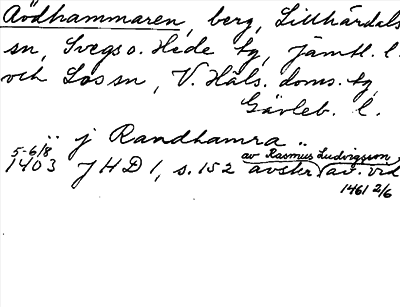 Åödhammaren, berg, Lillhärdals
sn, Svegs o. Hede tg, Jämtl. l.
och Los sn, V. Häls. doms. tg,
Gävleb. l.
.. j Randhamra ..
5-6/8 1403 JHD 1, s. 152 avskr. av. vid
av Rasmus Ludvigsson
1461 2/6